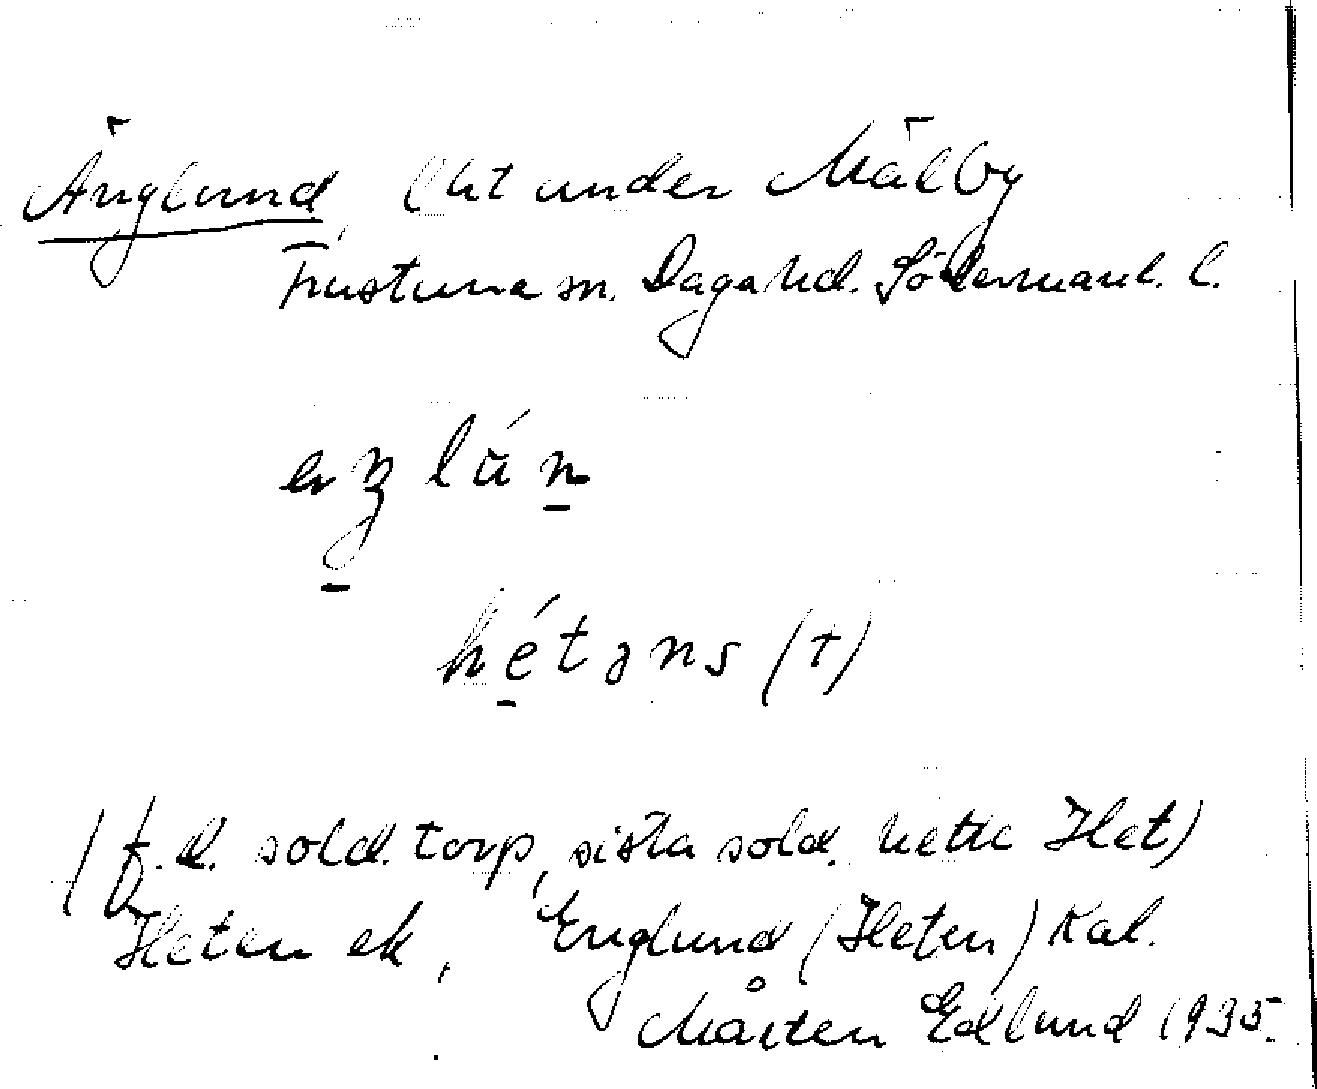 Änglund, lht under Mälby
Frustuna sn. Daga hd. Södermanl. l.
hétəns (†)
(f.d. sold. torp, sista sold. hette Het)
Heten ek, Englund (Heten) Kal.
Mårten Edlund 1935.